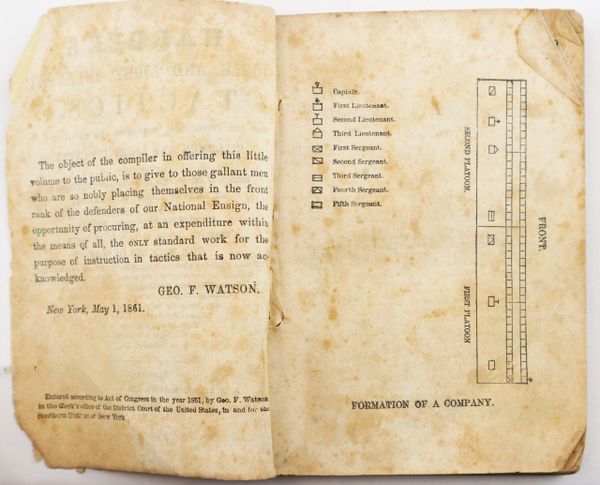 The object of the compiler in offering this little
volume to the public, is to give to those gallant men
who are so nobly placing themselves in the front
rank of the defenders of our National Ensign, the
opportunity of procuring, at an expenditure within
the means of all, the ONLY standard work for the
purpose of instruction in tactics that is now ac-
knowledged.
GEO. F. WATSON.
New York, May 1, 1861.
Entered according to Act of Congress in the year 1861, by Geo. F. Watson
in the Clerk's office of the District Court of the United States, in and for the
Southern District of New York
Captain.
First Lieutenant.
Second Lieutenant.
Third Lieutenant.
First Sergeant.
Second Sergeant.
Third Sergeant.
Fourth Sergeant.
Fifth Sergeant.
SECOND PLATOON.
FIRST PLATOON
FRONT.
FORMATION OF A COMPANY.